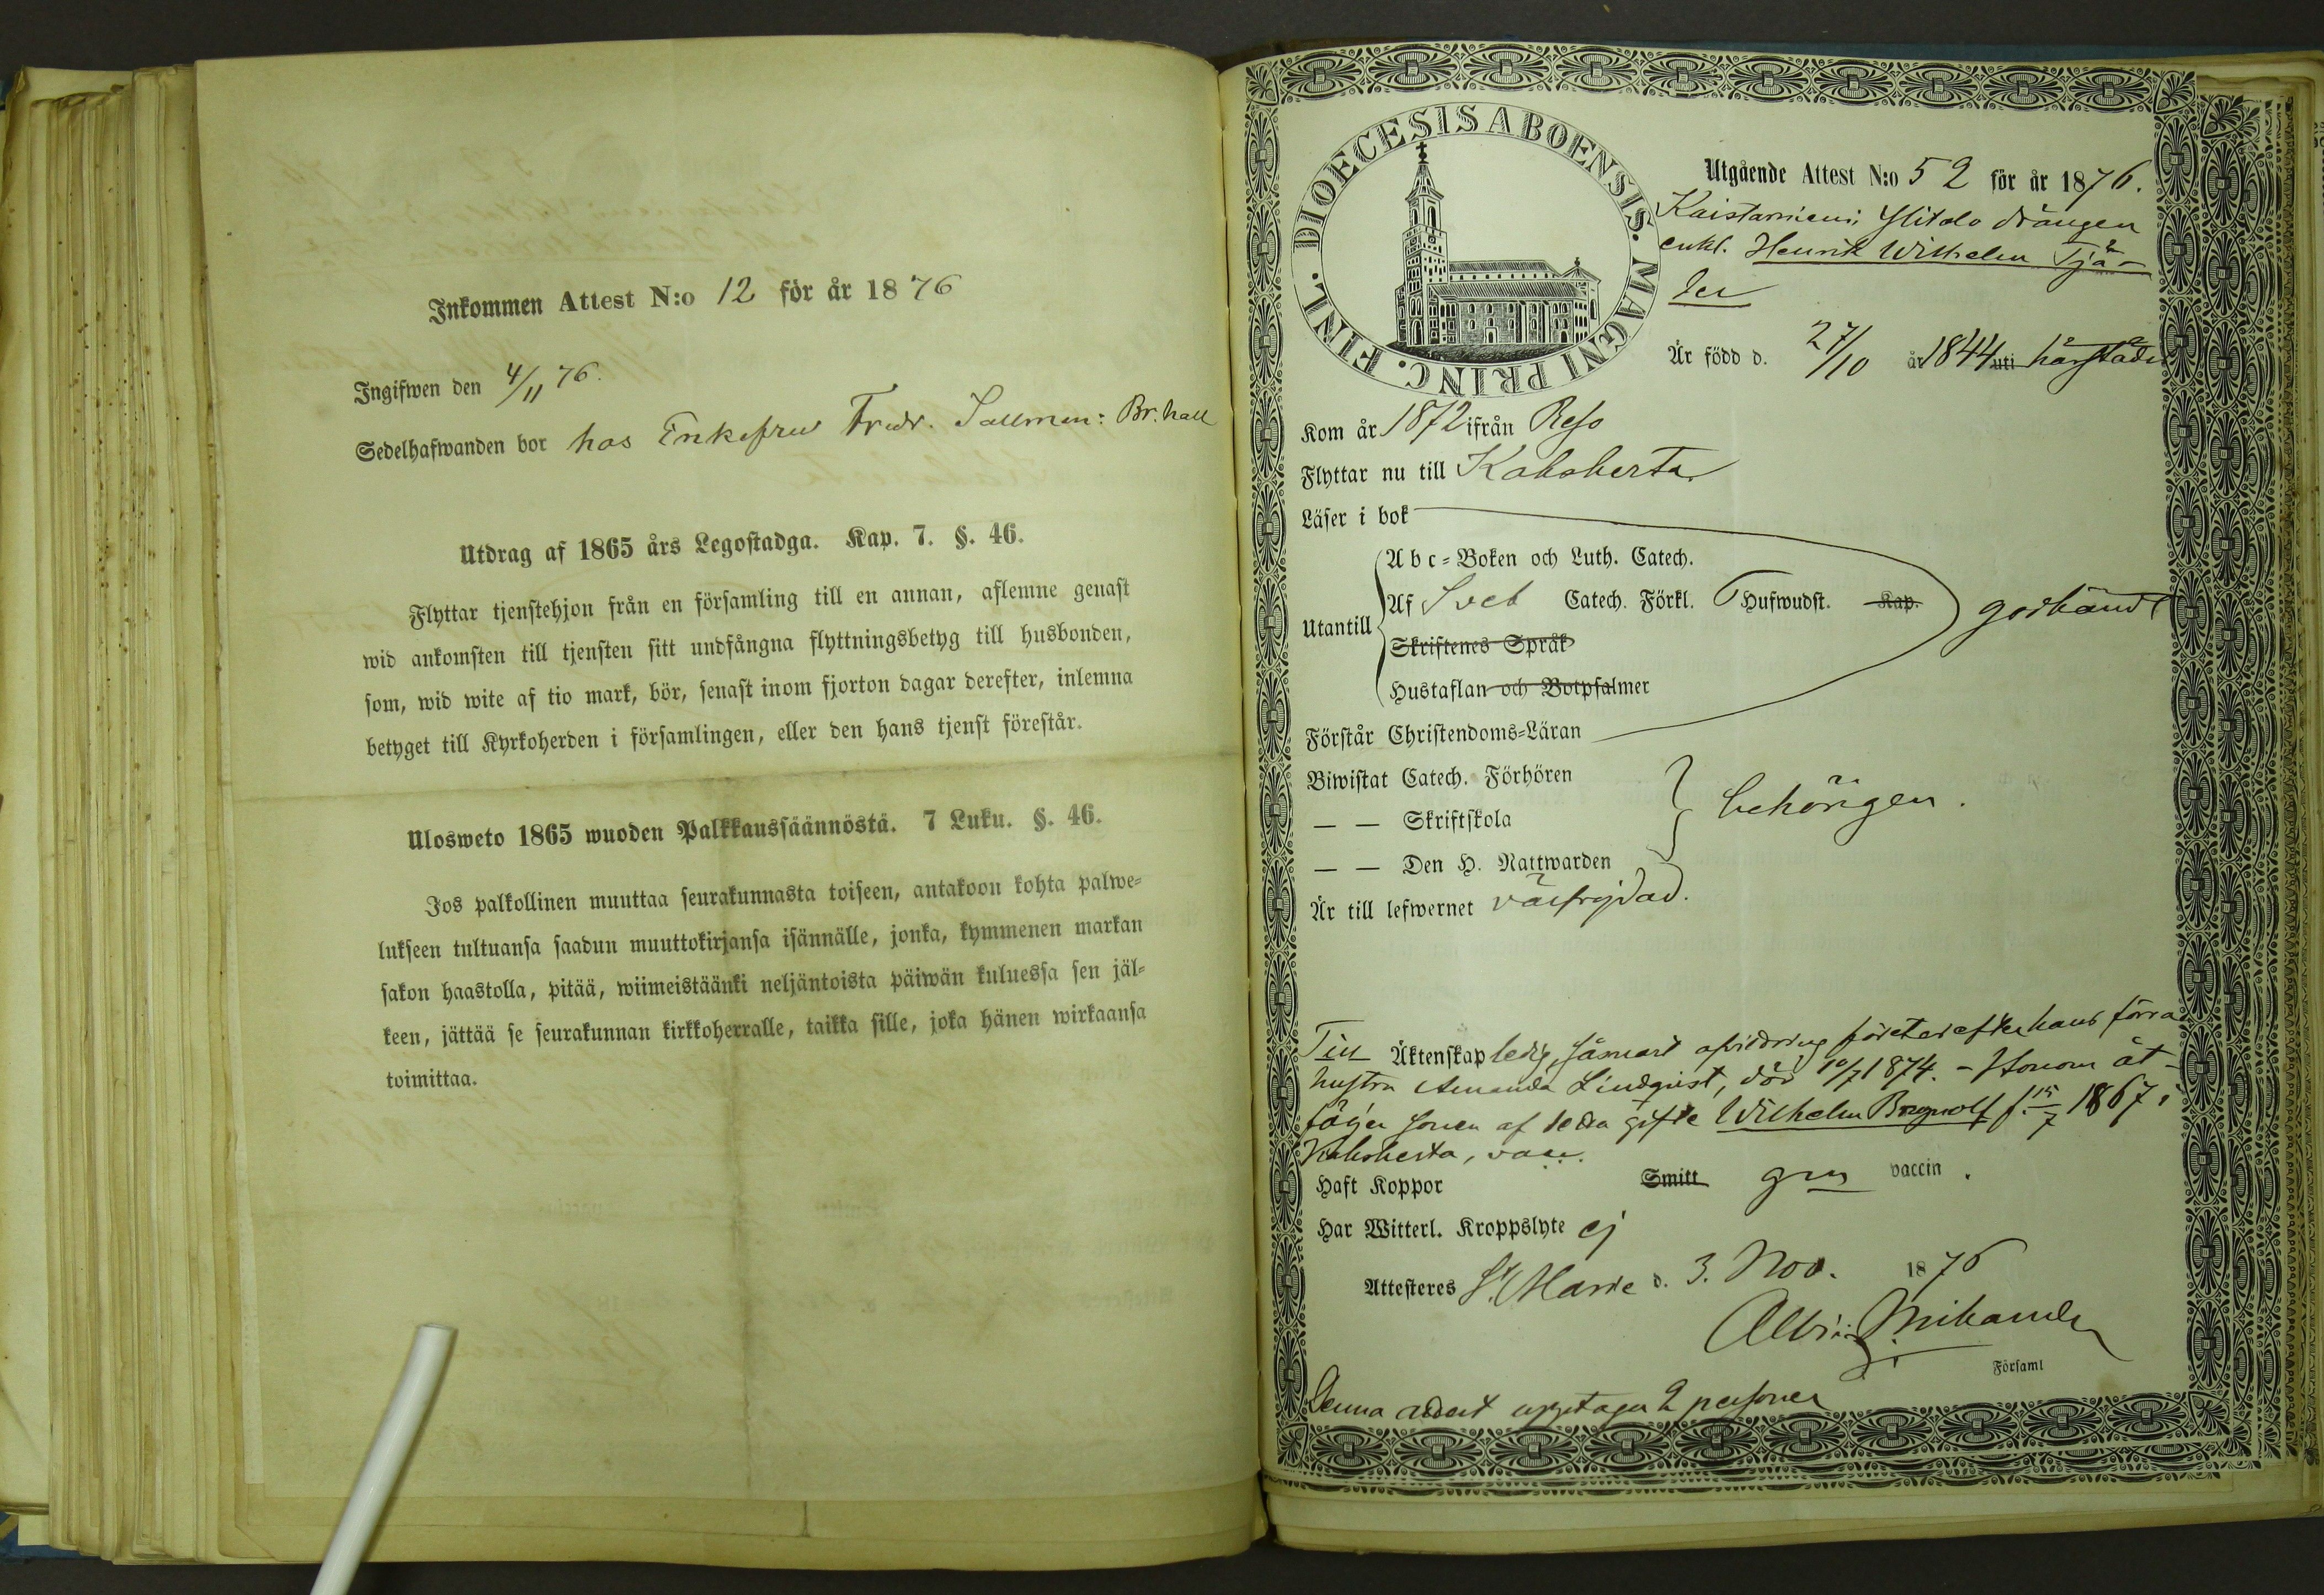 Inkommen Attest N:o 12 för år 1876
Ingifwen den 4/11 76.
Sedelhafwanden bor hos Enkefru Fredr. Sallmen: Br. hall
Utdrag af 1865 års Legostadga. Kap. 7. §. 46.
Flyttar tjenstehjon från en församling till en annan, aflemne genast
wid ankomsten till tjensten sitt undfångna flyttningsbetyg till husbonden,
som, wid wite af tio mark, bör, senast inom fjorton dagar derefter, inlemna
betyget till Kyrkoherden i församlingen, eller den hans tjenst förestår.
Ulosweto 1865 wuoden Palkkaussäännöstä. 7 Luku. §. 46.
Jos palkollinen muuttaa seurakunnasta toiseen, antakoon kohta palwe-
lukseen tultuansa saadun muuttokirjansa isännälle, jonka, kymmenen markan
sakon haastolla, pitää, wiimeistäänki neljäntoista päiwän kuluessa sen jäl-
keen, jättää se seurakunnan kirkkoherralle, taikka sille, joka hänen wirkaansa
toimittaa.
FINL. DIOECESIS ABOENSIS. MAGNI PRINC.
Utgående Attest N:o 52 för år 1876.
Kaistarniemi Ylitalo drängen
enkl. Henrik Wilhelm Tjä-
der
Är född d. 27/10 år 1844 uti härstädes
Kom år 1872 ifrån Reso
Flyttar nu till Kakskerta
Läser i bok
Abc-Boken och Luth. Catech.
Utantill Af Sveb Catech. Förkl. Hufwudst. Kap. godkändt
Skriftenes Språk
Hustaflan och Botpsalmer
Förstår Christendoms-Läran
Biwistat Catech. Förhören
— — Skriftskola behörigen.
— — Den H. Nattwarden
Är till lefwernet välfrejdad.
Till Äktenskap ledig, såsnart afvittring företer efter hans förra
hustru Amanda Lindqvist, död 10/7 1874. - Honom åt-
följer sonen af 1sta gifte Wilhelm f. 15/7 1867 i
Kakskerta, vacc.
Haft Koppor Smitt gm vaccin.
Har Witterl. Kroppslyte ej
Attesteres St Marie d. 3. Nov. 1876
Albin
Församl
Denna attest upptager 2 personer